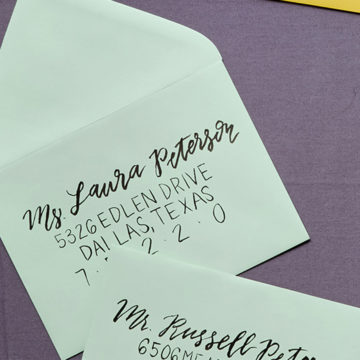 Ms. Laura Peterson
5326 EDLEN DRIVE
DALLAS, TEXAS
7. 2 . 2 . 0
Mr. Russell